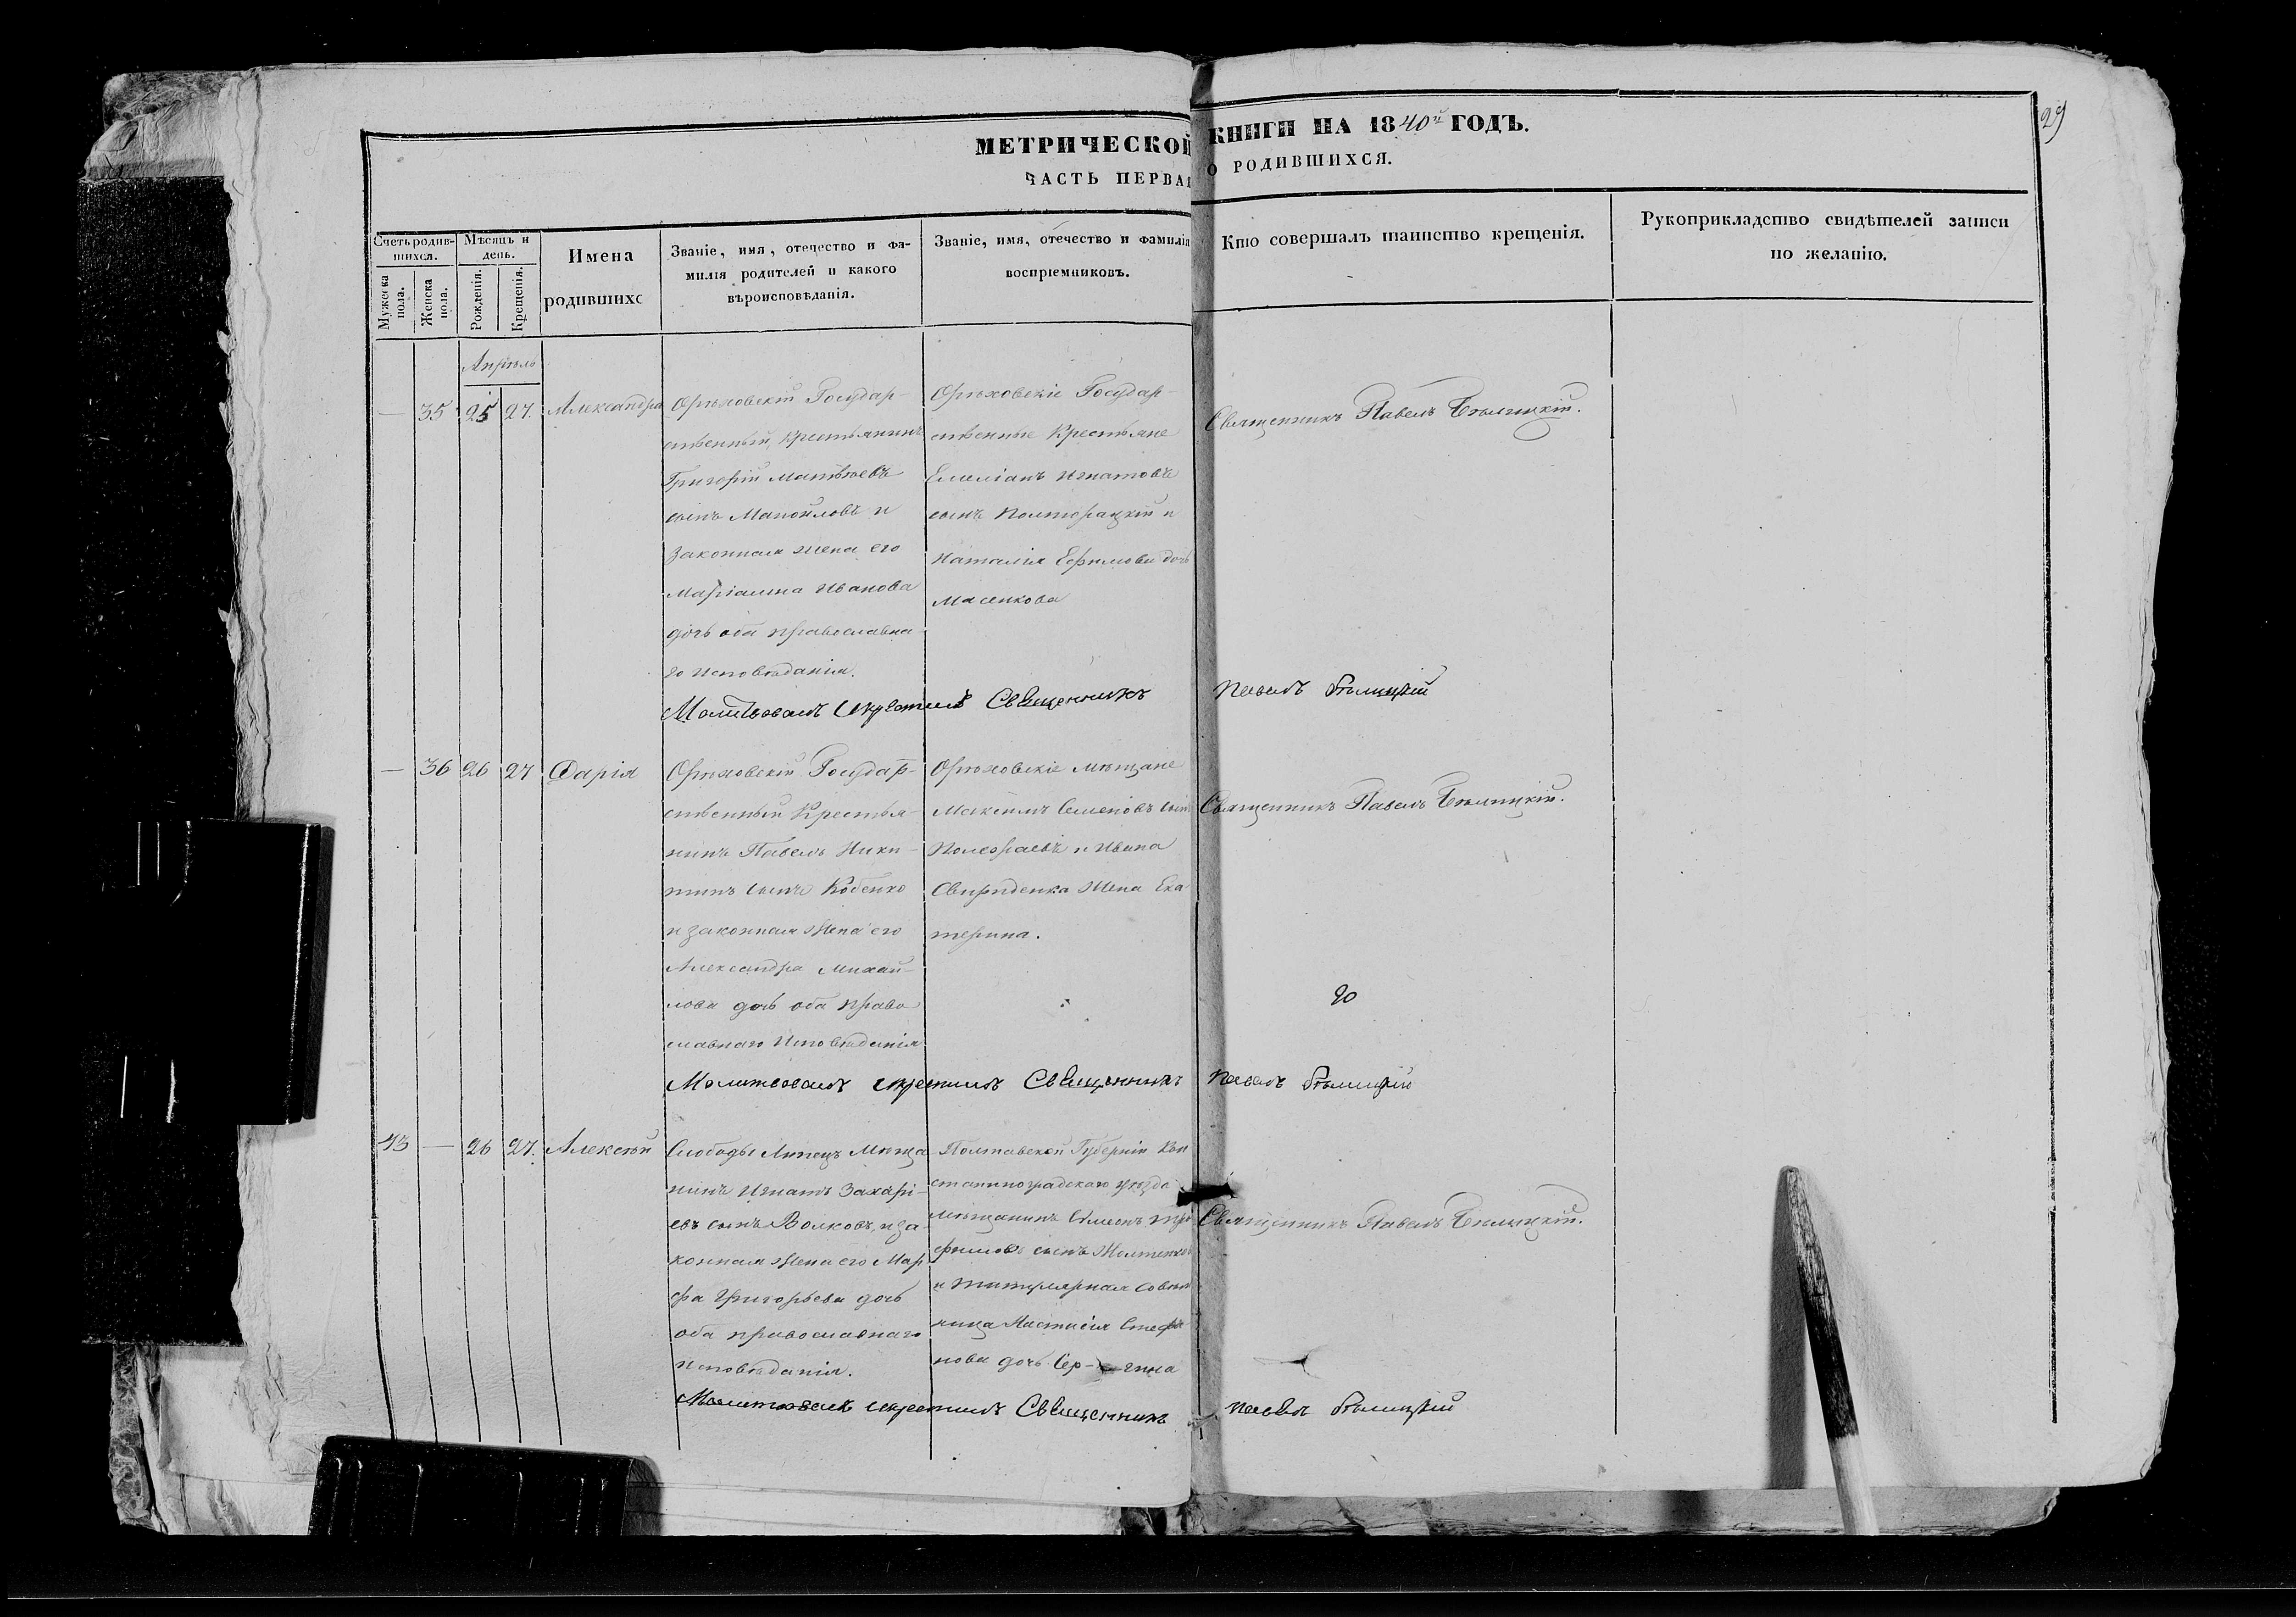 29
МЕТРИЧЕСКОЙ КНИГИ НА 1840й ГОДЪ.
ЧАСТЬ ПЕРВАЯ О РОДИВШИХСЯ.
Счетъ родившихся.
Мужеска пола.
Женска пола.
Мѣсяцъ и день.
Рожденія.
Крещенія.
Имена
родившихс
Званіе, имя, отечество и фа-
милія родителей и какого
вѣроисповѣданія.
Званіе, имя, отечество и фамилія
воспріемниковъ.
Кто совершалъ таинство крещенія.
Рукоприкладство свидѣтелей записи
по желанію.
Апрѣль
— 35 25 27. Александра
Орѣховскій Государ-
ственный Крестьянинъ
Григорій Матвѣевъ
сынъ Манойловъ и
законная жена его
Маріамна Иванова
дочь оба православна-
го исповѣданія.
Орѣховскіе Государ-
ственные Крестьяне
Емеліанъ Игнатовъ
сынъ Полторацкій и
Наталія Ефимова дочь
Масенкова
Священникъ Павелъ Бѣлицкій.
Молитвовалъ и крестилъ Священникъ Павелъ Бѣлицкій
— 36 26 27 Дарія
Орѣховскій Государ-
ственный Крестья-
нинъ Павелъ Ники-
тинъ сынъ Кобенко
и законная жена его
Александра Михай-
лова дочь оба право
славнаго исповѣданія
Орѣховскіе мѣщане
Максимъ Семеновъ сын
и Ивана
Свириденка жена Ека
терина.
Священникъ Павелъ Бѣлицкій.
20
Молитвовалъ и крестилъ Священникъ Павелъ Бѣлицкій
43 — 26 27. Алексѣй
Слободы Липецъ Мѣща
нинъ Игнатъ Захарі-
евъ сынъ Волковъ, и за-
конная жена его Мар
фа Григорьева дочь
оба православнаго
исповѣданія.
Полтавской Губерніи Кон
стантиноградскаго уѣзда
мѣщанинъ Симеонъ Тро
фимовъ сынъ
и Титулярная Совѣт
ница Настасія Стефа
нова дочь
Священникъ Павелъ Бѣлицкій.
Молитвовалъ и крестилъ Священникъ Павелъ Бѣлицкій